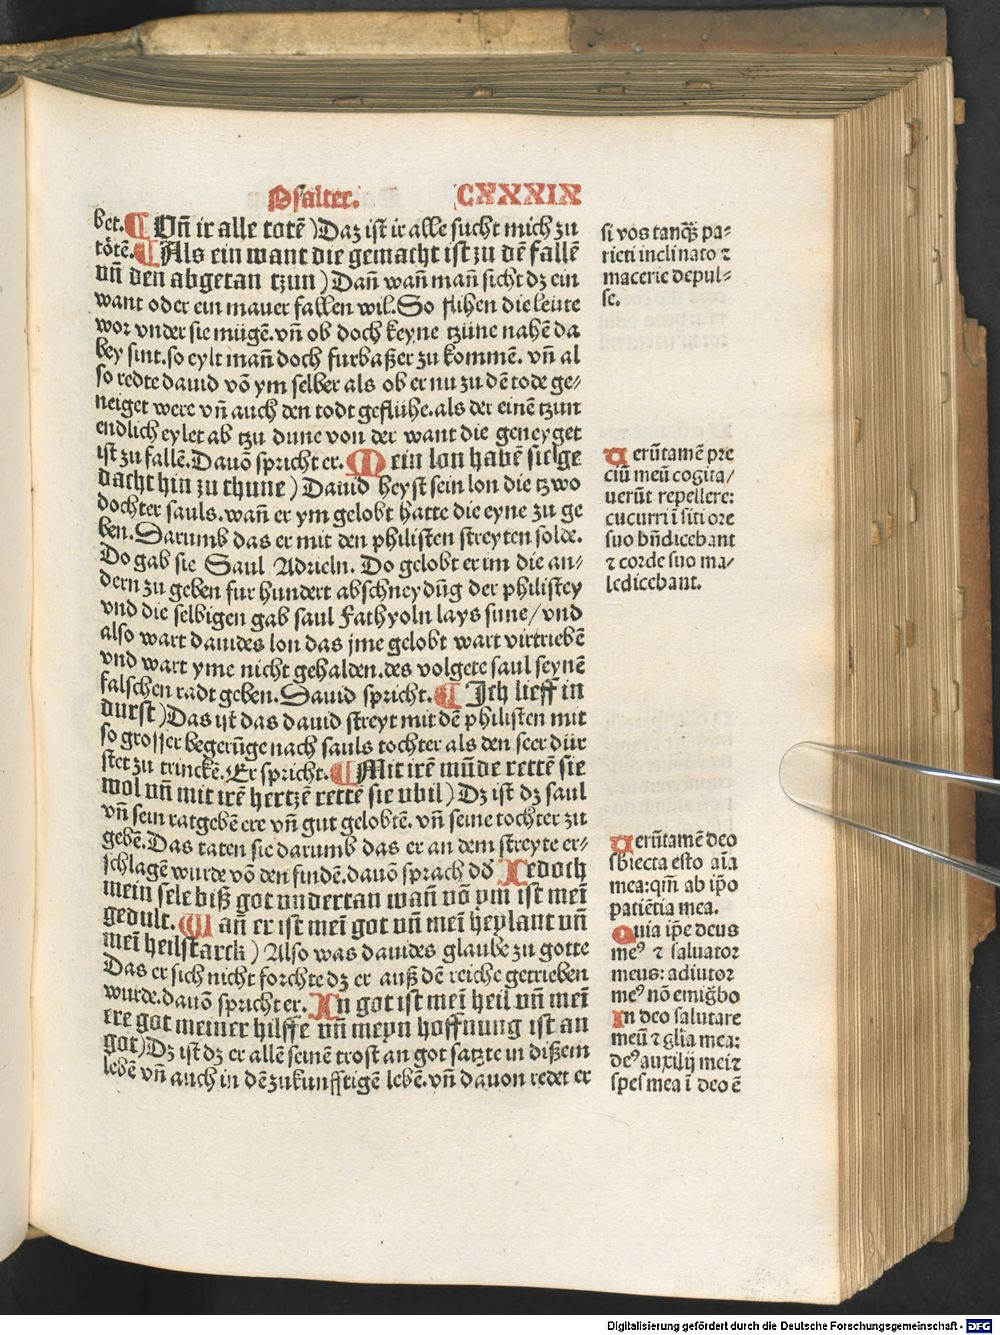 Psalter. CXXXIX
bet. ¶ Vñ ir alle totē) Daz ist ir alle sucht mich zu
tötē. ¶ Als ein want die gemacht ist zu dē fallē
vñ den abgetan tzun) Dañ wañ mañ sicht dz ein
want oder ein mauer fallen wil. So flihen die leute
wor vnder sie mügē. vñ ob doch keyne tzüne nahē da
bey sint. so eylt mañ doch furbaßer zu kommē. vñ al
so redte dauid vō ym selber als ob er nu zu dē tode ge⸗
neiget were vñ auch den todt geflühe. als der einē tzun
endlich eylet ab tzu dune von der want die geneyget
ist zu fallē. Dauō spricht er. Mein lon habē sie ge
dacht hin zu thune) Dauid heyst sein lon die tzwo
dochter sauls. wañ er ym gelobt hatte die eyne zu ge
ben. Darumb das er mit den philisten streyten solde.
Do gab sie Saul Adrieln. Do gelobt er im die an⸗
dern zu geben fur hundert abschneydūg der philistey
vnd die selbigen gab saul Fathyoln lays sune/ vnd
also wart dauides lon das jme gelobt wart virtriebē
vnd wart yme nicht gehalden. des volgete saul seynē
falschen radt geben. Dauid spricht. ¶ Ich lieff in
durst) Das ist das dauid streyt mit dē philisten mit
so grosser begerūge nach sauls tochter als den seer dür
stet zu trinckē. Er spricht. ¶ Mit irē mūde rettē sie
wol vñ mit irē hertzē rettē sie vbil) Dz ist dz saul
vñ sein ratgebē ere vñ gut gelobtē. vñ seine tochter zu
gebē. Das taten sie darumb das er an dem streyte er⸗
schlagē wurde vō den findē. dauō sprach dō Jedoch
mein sele biß got vndertan wañ vō ym ist meī
gedult. Wañ er ist meī got vñ meī heylant vñ
meī heilstarck) Also was dauides glaube zu gotte
Das er sich nicht forchte dz er auß dē reiche getrieben
wurde. dauō spricht er. In got ist meī heil vñ meī
ere got meiner hilffe vñ meyn hoffnung ist an
got) Dz ist dz er allē seinē trost an got satzte in dißem
lebē vñ auch in dē zukunfftigē lebē. vñ dauon redet er
si vos tanq̄ȝ pa⸗
rieti inclinato ⁊
macerie depul⸗
se.
Verūtamē pre
ciū meū cogita/
uerūt repellere:
cucurri ī siti ore
suo bn̄dicebant
⁊ corde suo ma/
ledicebant.
Verūtamē deo
sbiecta esto aīa
mea: qm̄ ab ip̄o
patiētia mea.
Quia ip̄e deus
meꝰ ⁊ saluator
meus: adiutor
meꝰ nō emig̃bo
In deo salutare
meū ⁊ gl̄ia mea:
deꝰ auxilij mei ⁊
spes mea ī deo ē
Digitalisierung gefördert durch die Deutsche Forschungsgemeinschaft - DFG